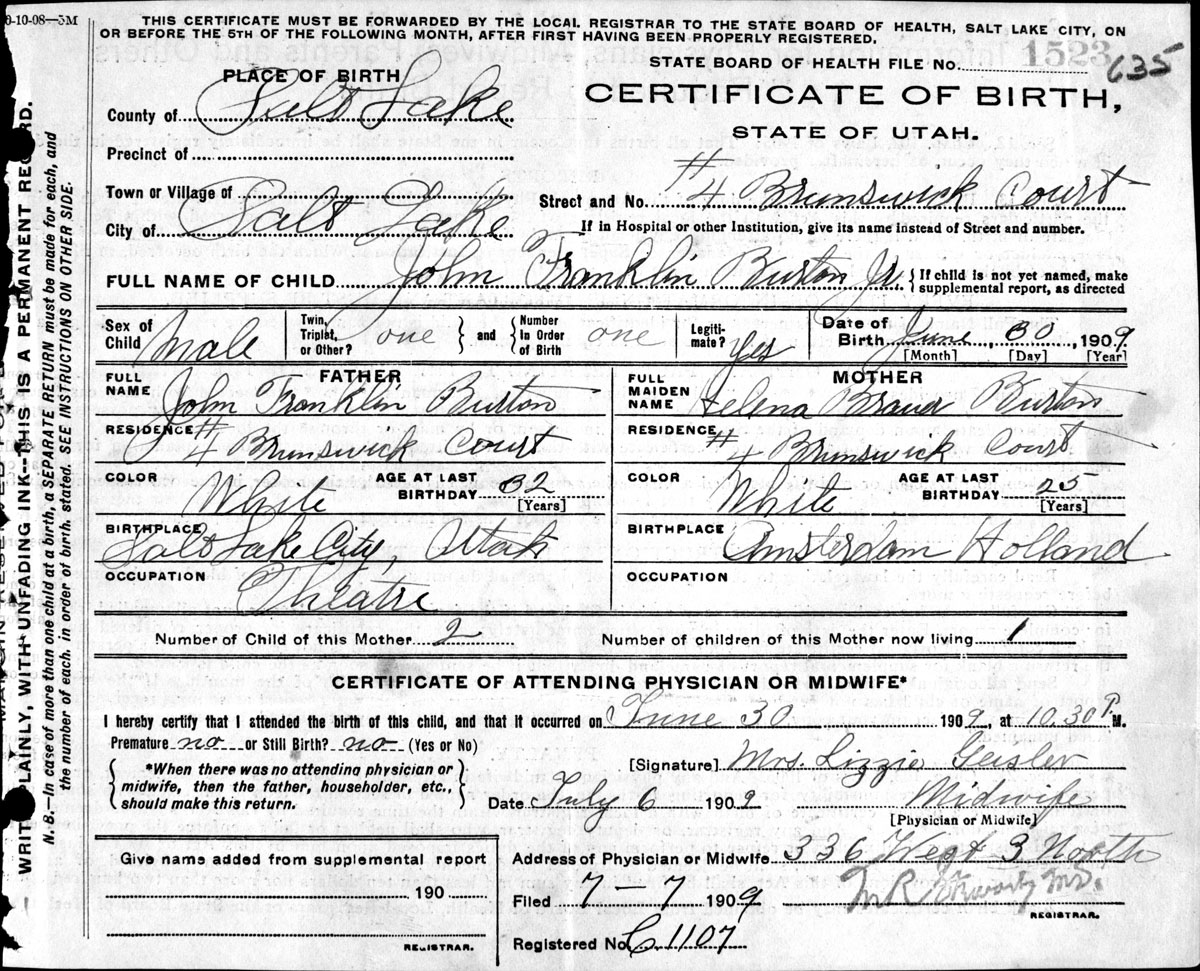 0-10-08—5M
THIS CERTIFICATE MUST BE FORWARDED BY THE LOCAL REGISTRAR TO THE STATE BOARD OF HEALTH, SALT LAKE CITY, ON
OR BEFORE THE 5TH OF THE FOLLOWING MONTH, AFTER FIRST HAVING BEEN PROPERLY REGISTERED.
STATE BOARD OF HEALTH FILE No. 1523 635
PLACE OF BIRTH
CERTIFICATE OF BIRTH,
STATE OF UTAH.
County of Salt Lake
Precinct of
Town or Village of
City of Salt Lake
Street and No. #4 Brunswick Court
If in Hospital or other Institution, give its name instead of Street and number.
FULL NAME OF CHILD John Franklin Burton Jr. { If child is not yet named, make
supplemental report, as directed
Sex of Child Male
Twin, Triplet, or Other? one } and { Number In Order of Birth one
Legiti-mate? Yes
Date of Birth June 30, 1909
[Month] [Day] [Year]
FATHER
FULL NAME John Franklin Burton
RESIDENCE #4 Brunswick Court
COLOR White AGE AT LAST BIRTHDAY 32 [Years]
BIRTHPLACE Salt Lake City, Utah
OCCUPATION Theatre
MOTHER
FULL MAIDEN NAME Helena Burton
RESIDENCE #4 Brunswick Court
COLOR White AGE AT LAST BIRTHDAY 25 [Years]
BIRTHPLACE Amsterdam Holland
OCCUPATION
Number of Child of this Mother 2
Number of children of this Mother now living 1
CERTIFICATE OF ATTENDING PHYSICIAN OR MIDWIFE*
I hereby certify that I attended the birth of this child, and that it occurred on June 30 1909, at 10.30 P M.
Premature no or Still Birth? no (Yes or No)
{ *When there was no attending physician or
midwife, then the father, householder, etc.,
should make this return. }
[Signature] Mrs. Lizzie Geisler
Date July 6 1909 Midwife
[Physician or Midwife]
Give name added from supplemental report
190
REGISTRAR.
Address of Physician or Midwife 336 West 3 North
Filed 7—7 1909 M.D.
REGISTRAR.
Registered No. C 1107
WRITE PLAINLY, WITH UNFADING INK—THIS IS A PERMANENT RECORD.
N. B.—In case of more than one child at a birth, a SEPARATE RETURN must be made for each, and
the number of each, in order of birth, stated. SEE INSTRUCTIONS ON OTHER SIDE.